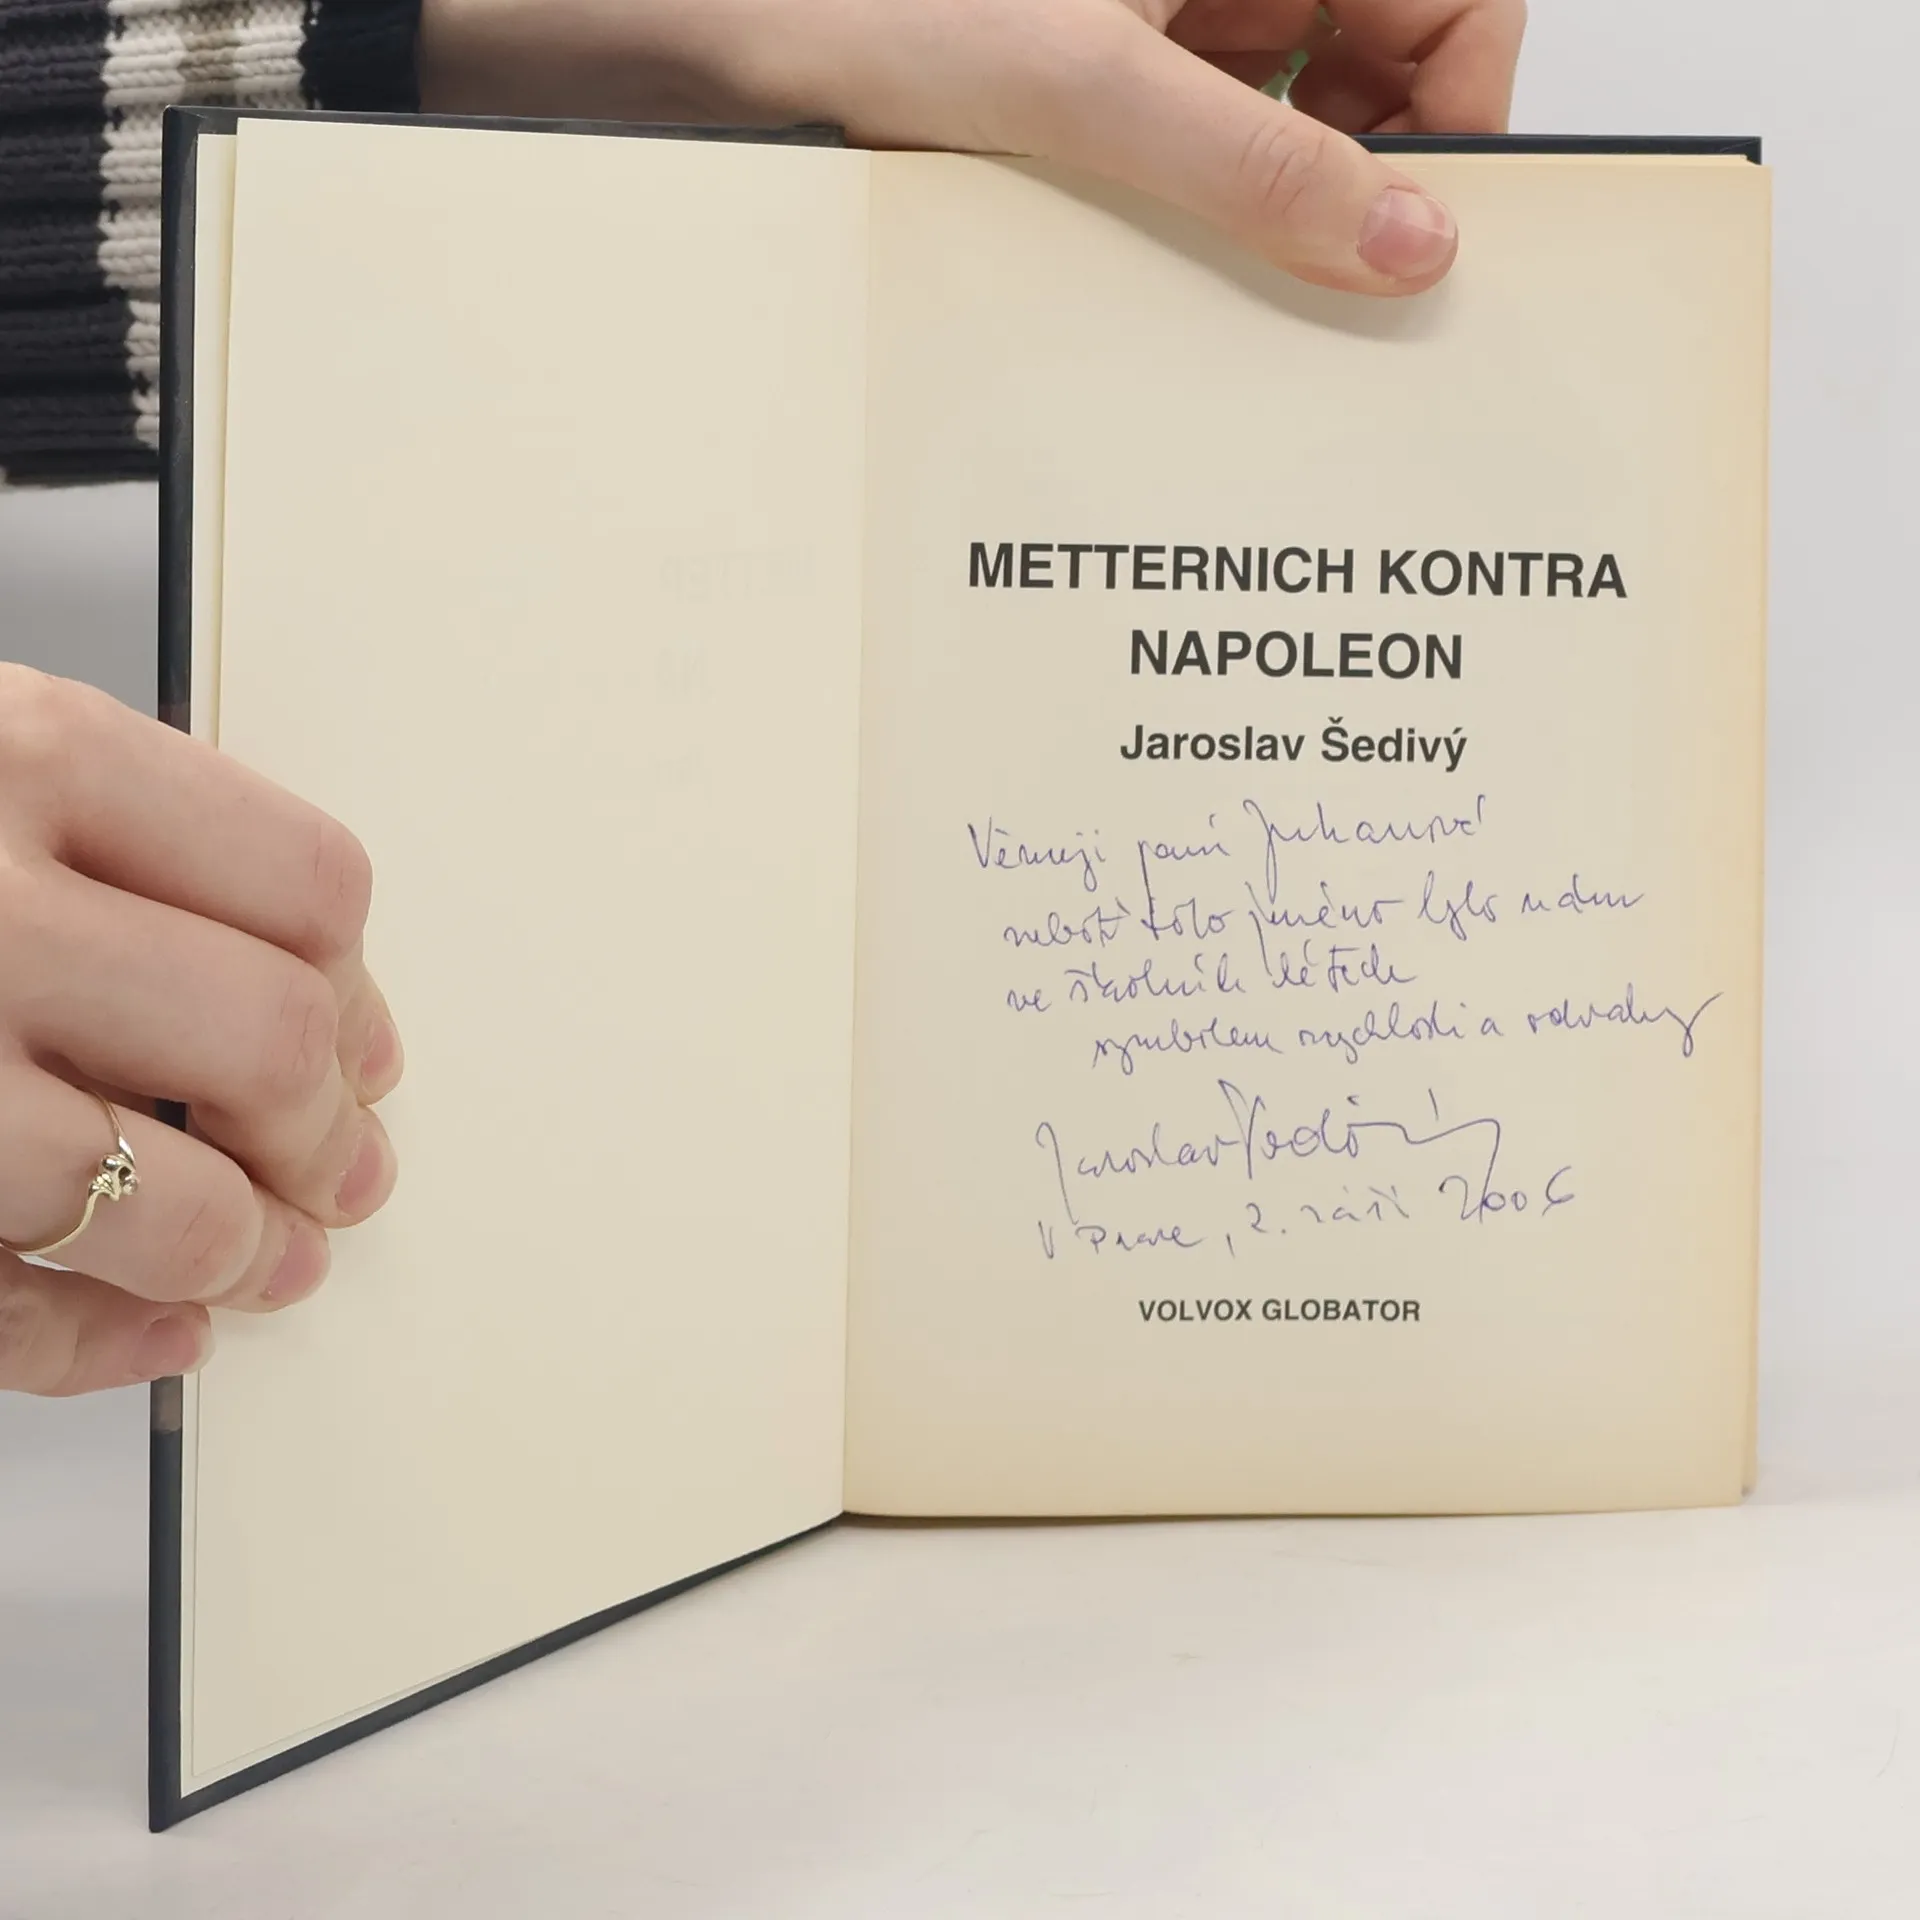 METTERNICH KONTRA
NAPOLEON
Jaroslav Šedivý
Věnuji paní Junkanové
neboť toto jméno bylo nám
ve školních létech
symbolem rychlosti a odvahy
Jaroslav Šedivý
V Praze, 2. září 2006
VOLVOX GLOBATOR